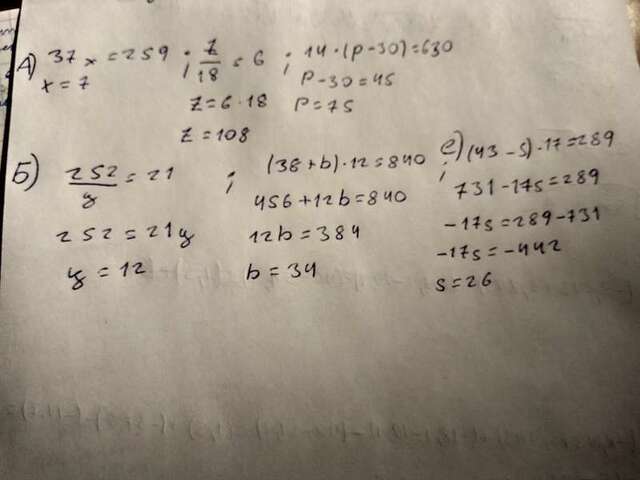 А) 37x = 259 ; z/18 = 6 ; 14 · (p - 30) = 630
x = 7
p - 30 = 45
z = 6 · 18
p = 75
z = 108
Б) 252/y = 21 ; (38 + b) · 12 = 840 ; е) (43 - s) · 17 = 289
456 + 12b = 840
731 - 17s = 289
252 = 21y
12b = 384
-17s = 289 - 731
y = 12
b = 34
-17s = -442
s = 26